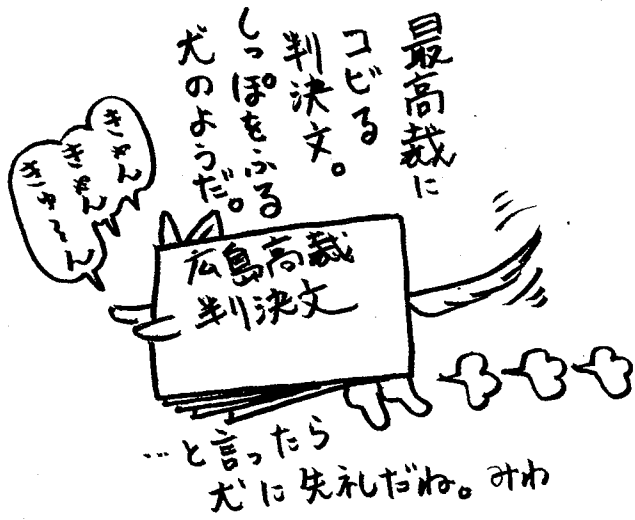 最高裁に
コビる
判決文。
しっぽをふる
犬のようだ。
きゃん
きゃん
きゅ~ん
広島高裁
判決文
…と言ったら
犬に失礼だね。みわ